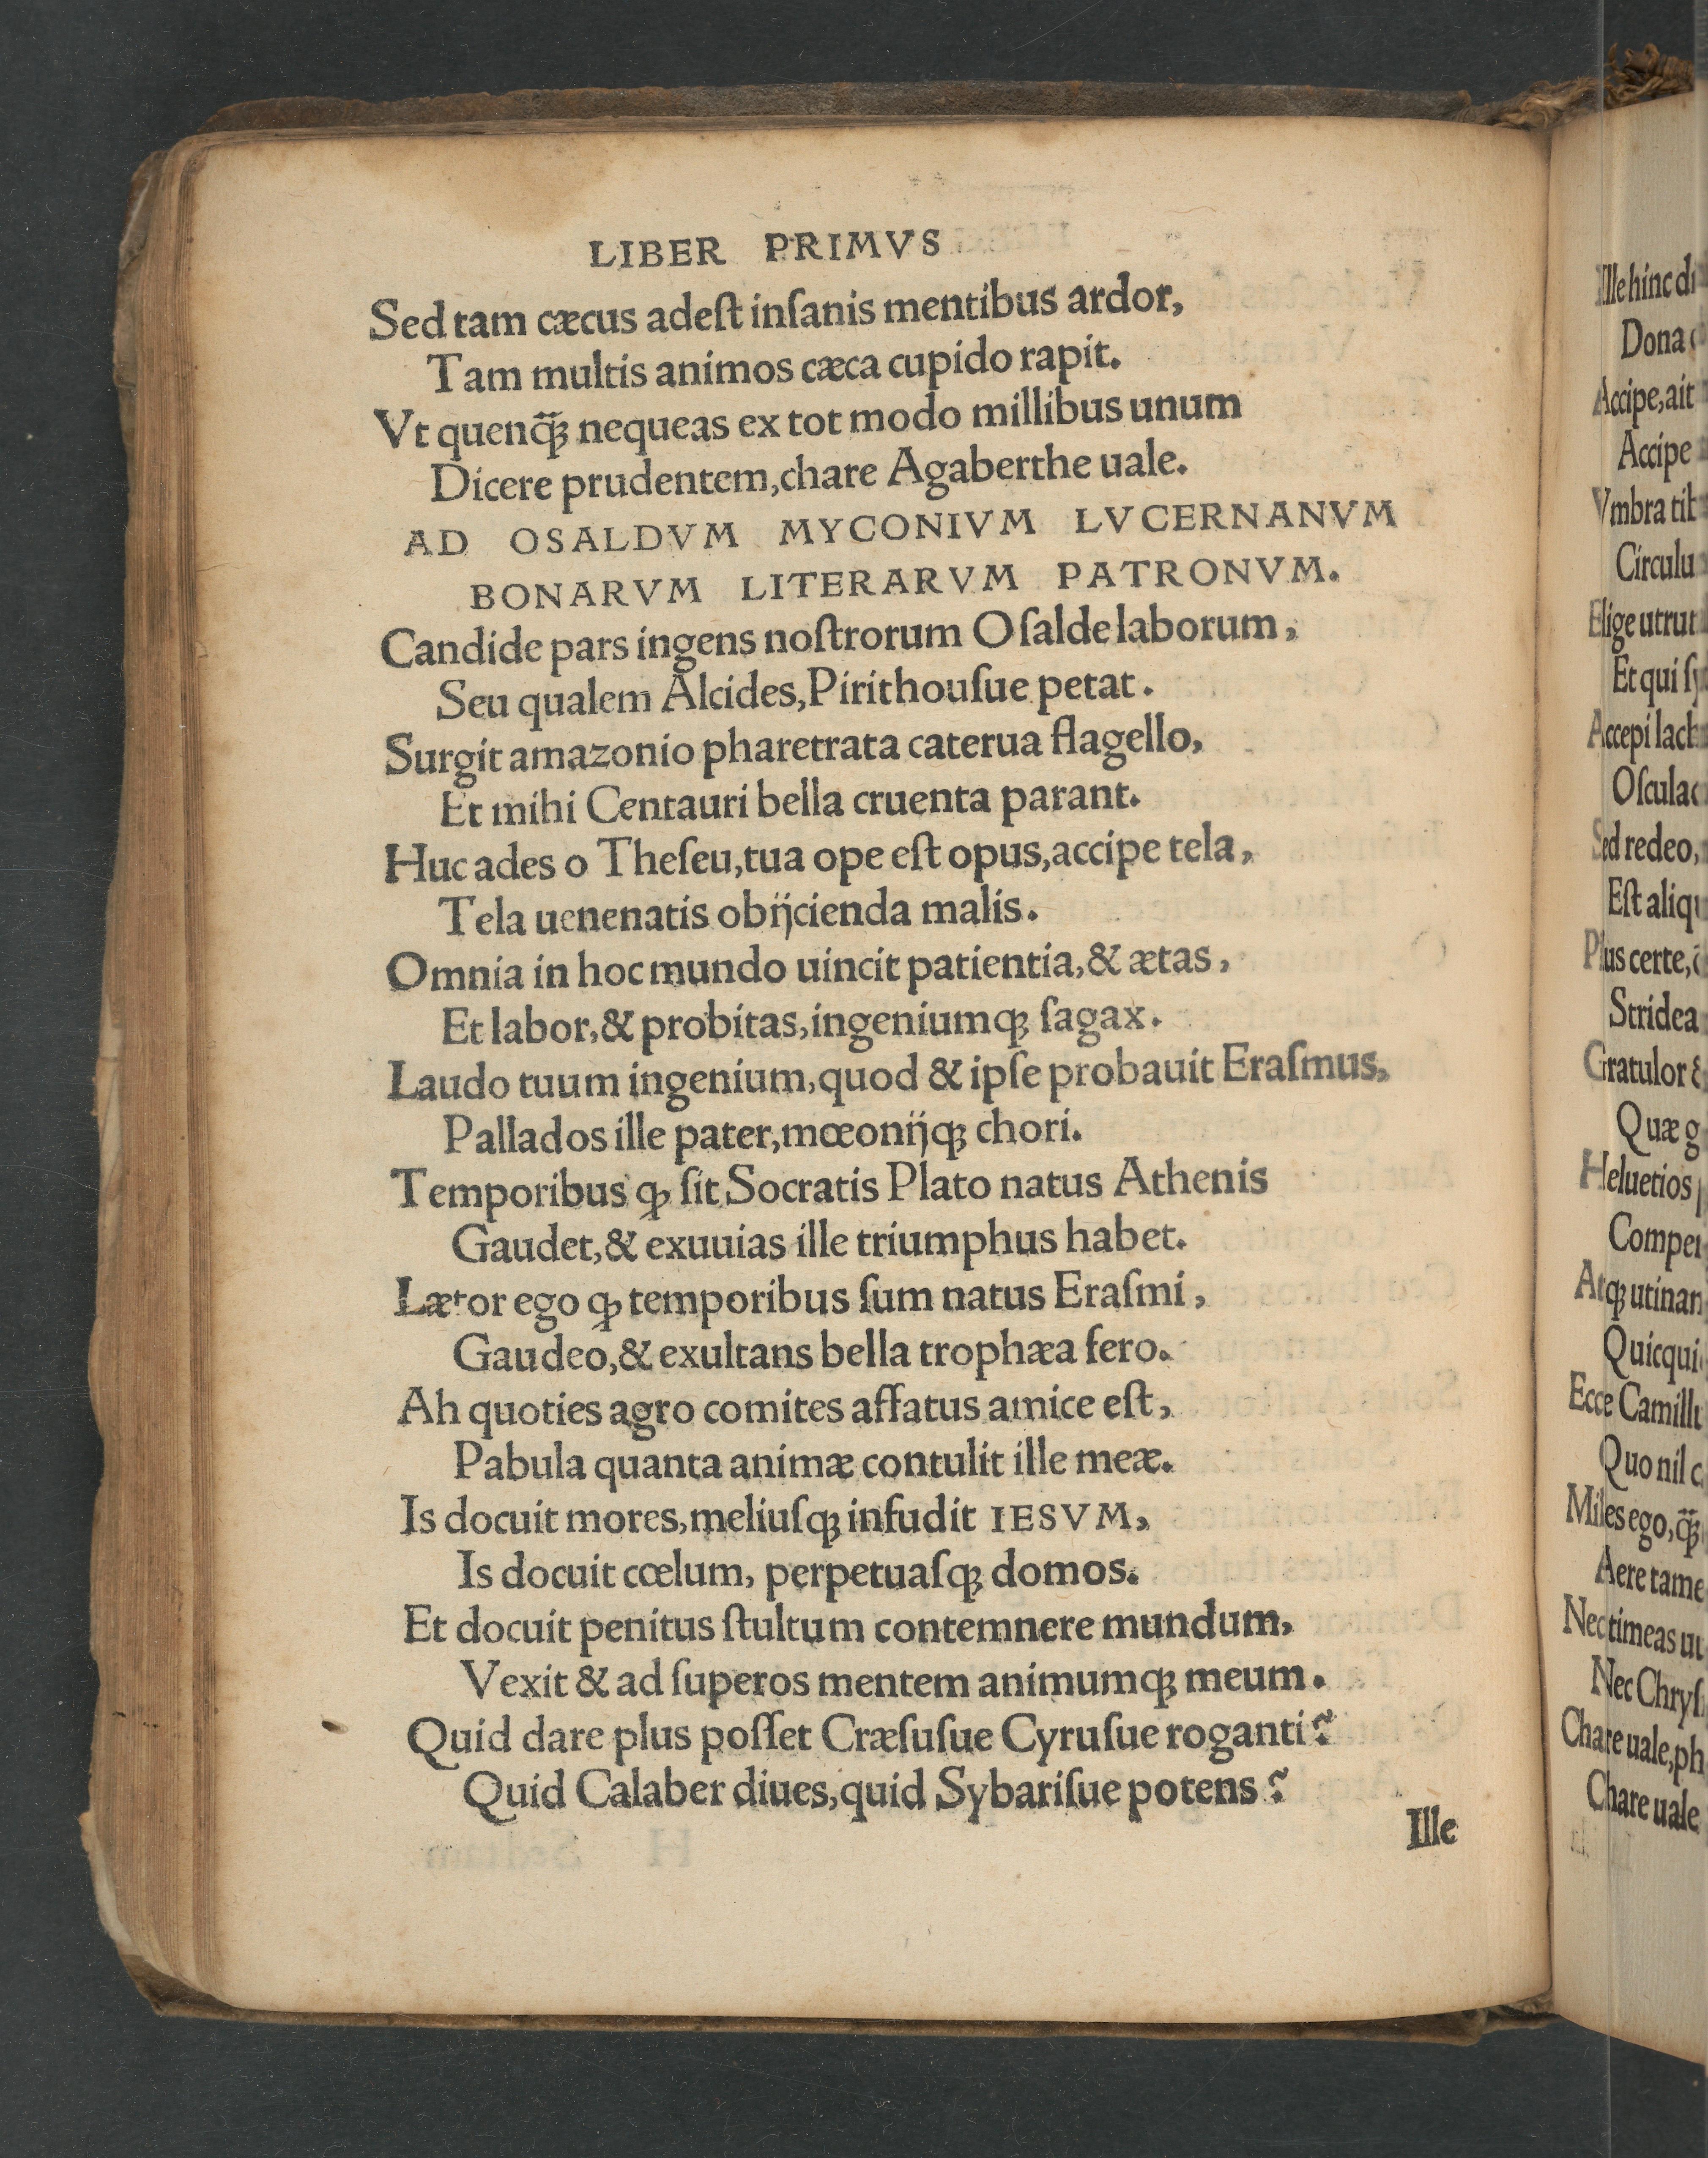 LIBER PRIMVS
Sed tam cæcus adeſt inſanis mentibus ardor,
Tam multis animos cæca cupido rapit.
Vt quenq̃ꝫ nequeas ex tot modo millibus unum
Dicere prudentem,chare Agaberthe uale.
AD OSALDVM MYCONIVM LVCERNANVM
BONARVM LITERARVM PATRONVM.
Candide pars ingens noſtrorum Oſalde laborum,
Seu qualem Alcides,Pirithouſue petat.
Surgit amazonio pharetrata caterua flagello,
Et mihi Centauri bella cruenta parant.
Huc ades o Theſeu,tua ope eſt opus,accipe tela,
Tela uenenatis obijcienda malis.
Omnia in hoc mundo uincit patientia,& ætas,
Et labor,& probitas,ingeniumqꝫ ſagax.
Laudo tuum ingenium,quod & ipſe probauit Eraſmus,
Pallados ille pater,mœonijqꝫ chori.
Temporibus ꝙ ſit Socratis Plato natus Athenis
Gaudet,& exuuias ille triumphus habet.
Lætor ego ꝙ temporibus ſum natus Eraſmi,
Gaudeo,& exultans bella trophæa fero.
Ah quoties agro comites affatus amice eſt,
Pabula quanta animæ contulit ille meæ.
Is docuit mores,meliuſqꝫ infudit IESVM,
Is docuit cœlum, perpetuaſqꝫ domos.
Et docuit penitus ſtultum contemnere mundum,
Vexit & ad ſuperos mentem animumqꝫ meum.
Quid dare plus poſſet Cræſuſue Cyruſue roganti?
Quid Calaber diues,quid Sybariſue potens?
Ille
Ille hinc
Dona
Accipe,ait
Accipe
Vmbra
Elige
Et qui
Accepi
Sed redeo,
Eſt
Plus certe,
Gratulor
Quæ
Heluetios
Ecce
Quo nil
Miles ego,
Aere
Nec timeas
Nec
Chare uale,
Chare uale